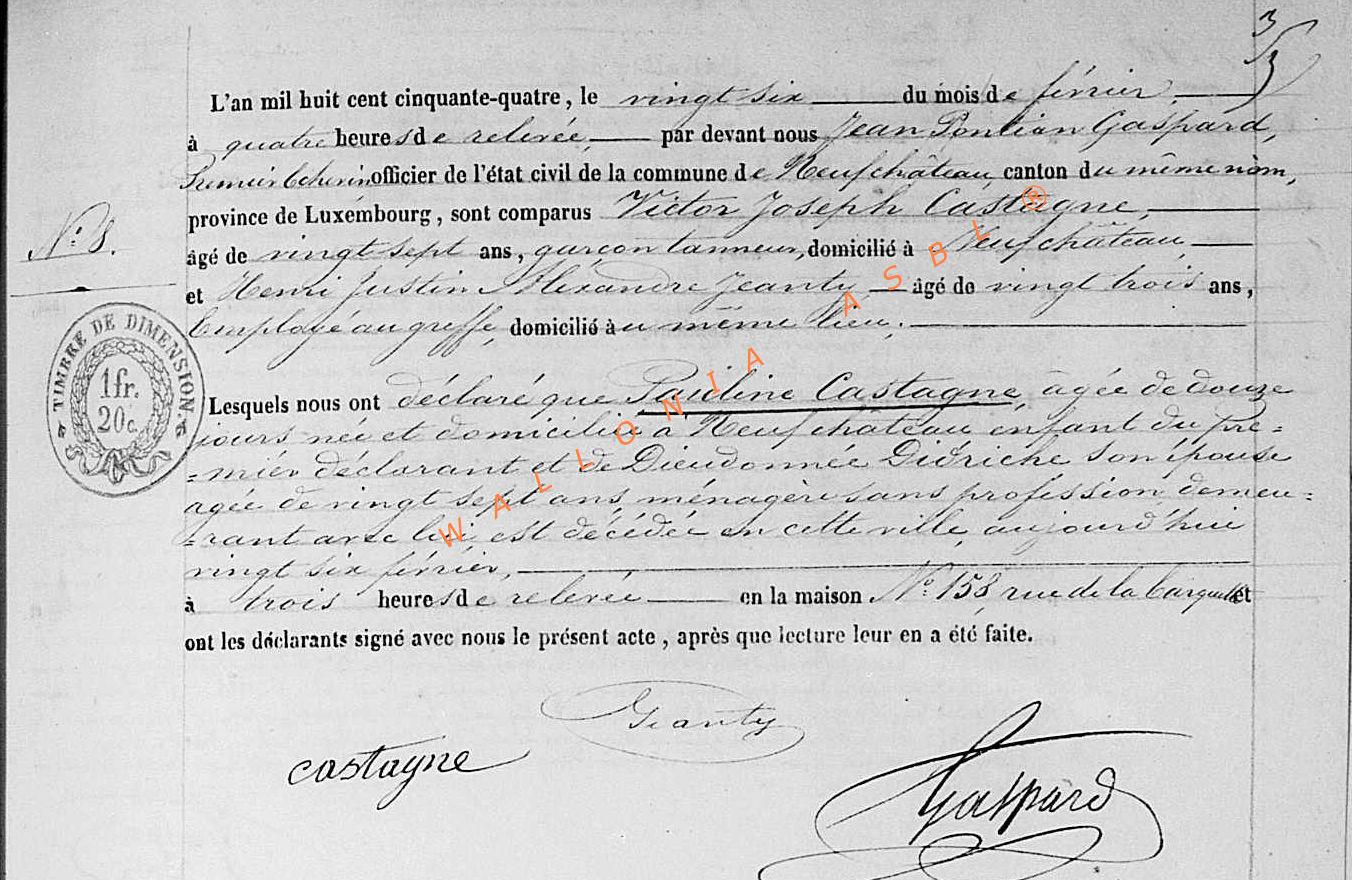 3/3
L'an mil huit cent cinquante-quatre, le vingt six du mois de février,
à quatre heures de relevée, par devant nous Jean Pontian Gaspard,
Premier Echevin, officier de l'état civil de la commune de Neufchâteau, canton du même nom,
province de Luxembourg, sont comparus Victor Joseph Castagne,
N° 8.
âgé de vingt sept ans, garçon tanneur, domicilié à Neufchâteau,
et Henri Justin Alexandre Jeanty, âgé de vingt trois ans,
Employé au greffe, domicilié au même lieu.
TIMBRE DE DIMENSION.
1fr.
20c.
Lesquels nous ont déclaré que Pauline Castagne, âgée de douze
jours née et domiciliée à Neufchâteau enfant du pre=
=mier déclarant et de Dieudonnée Didriche son épouse
agée de vingt sept ans, ménagère sans profession demeu=
=rant avec lui est décédée en cette ville, aujourd'hui
vingt six février,
à trois heures de relevée en la maison N° 158, rue de la et
ont les déclarants signé avec nous le présent acte, après que lecture leur en a été faite.
Jeanty
castagne
Gaspard
WALLONIA ASBL ®